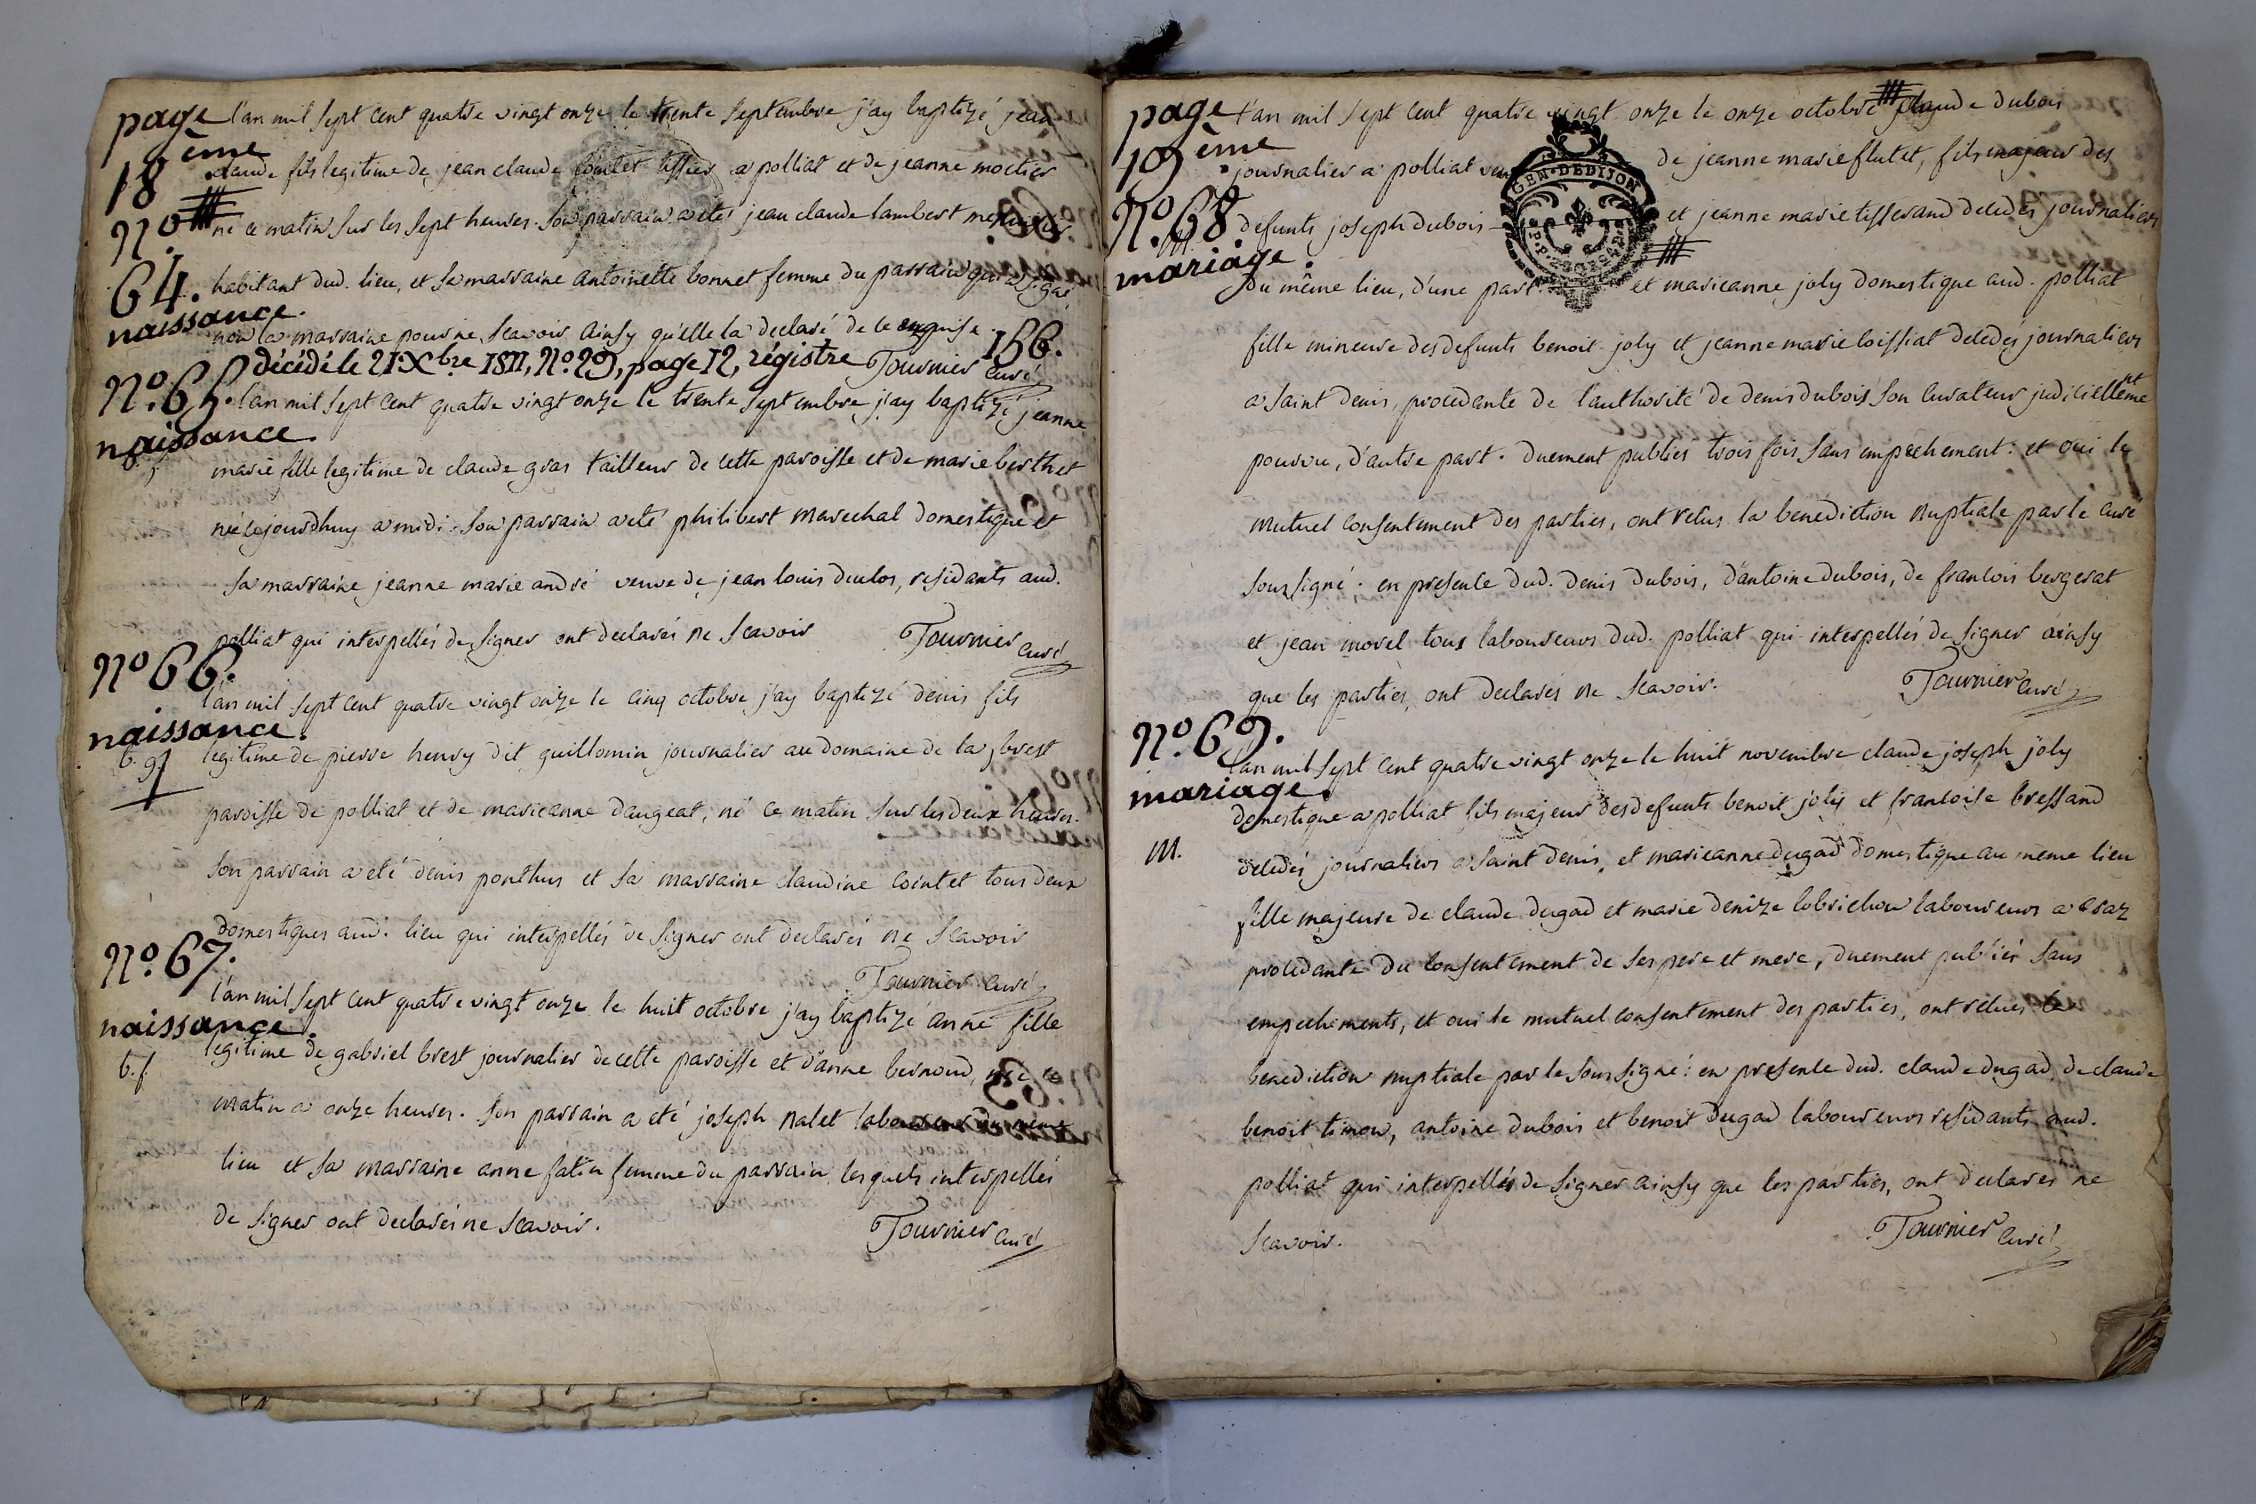 page
18
ème
l'an mil sept cent quatre vingt onze le trente septembre j'ay baptizé jean
claude fils legitime de jean claude tissier a polliat et de jeanne moctier
N.º
né ce matin sur les sept heures. son parrain a eté jean claude lambert
64.
habitant dud. lieu, et sa marraine antoinette bonnet femme du parrain qui a signé
naissance.
non la marraine pour ne scavoir ainsy qu'elle la declaré de ce enquise.
décédé le 21 Xbre 1811, Nº 29, page 12, régistre 156.
Tournier curé
Nº. 65.
naissance.
l'an mil sept cent quatre vingt onze le trente septembre j'ay baptizé jeanne
marie fille legitime de claude gras tailleur de cette paroisse et de marie berthet
née cejourdhuy a midi. son parrain a eté philibert marechal domestique et
sa marraine jeanne marie andré veuve de jean louis duclos, residants aud.
polliat qui interpellés de signer ont declarés ne scavoir
Tournier curé
Nº 66.
naissance.
l'an mil sept cent quatre vingt onze le cinq octobre j'ay baptizé denis fils
b. g.
legitime de pierre henry dit guillomin journalier au domaine de la forest
paroisse de polliat et de marieanne daugeat, né ce matin sur les deux heures.
son parrain a eté denis ponthus et sa marraine claudine cointet tous deux
domestiques aud. lieu qui interpellés de signer ont declarés ne scavoir
Tournier curé
Nº. 67.
naissance.
l'an mil sept cent quatre vingt onze le huit octobre j'ay baptizé anne fille
b. f.
legitime de gabriel brest journalier de cette paroisse et d'anne bernoud, née ce
matin a onze heures. son parrain a eté joseph nalet laboureur du meme
lieu et sa marraine anne fatin femme du parrain lesquels interpellés
de signer ont declarés ne scavoir.
Tournier curé
page
19
ème
l'an mil sept cent quatre vingt onze le onze octobre claude dubois
journalier a polliat de jeanne marie flutet, fils majeur des
Nº. 68
mariage.
defunts joseph dubois et jeanne marie tisserand decedés journaliers
du même lieu, d'une part et marieanne joly domestique aud. polliat
GEN. DE DIJON
fille mineure des defunts benoit joly et jeanne marie loissiat decedés journaliers
a saint denis, procedante de l'authorité de denis dubois son curateur judiciellemet
pourvu, d'autre part. duement publiés trois fois sans empechement: et oui le
mutuel consentement des parties, ont recus la benediction nuptiale par le curé
soussigné. en presence dud. denis dubois, d'antoine dubois, de francois bergerat
et jean morel tous laboureurs dud. polliat qui interpellés de signer ainsy
que les parties, ont declarés ne scavoir.
Tournier curé
Nº. 69.
mariage.
l'an mil sept cent quatre vingt onze le huit novembre claude joseph joly
domestique a polliat fils majeur des defunts benoit joly et francoise bressand
m.
decedés journaliers a saint denis, et marieanne dugad domestique au meme lieu
fille majeure de claude dugad et marie denize lobrichon laboureurs a
procedante du consentement de ses pere et mere, duement publiés sans
empechements, et oui le mutuel consentement des parties, ont recues la
benediction nuptiale par le soussigné: en presence dud. claude dugad, de claude
benoit timon, antoine dubois et benoit dugad laboureurs residants aud.
polliat qui interpellés de signer ainsy que les parties, ont declarés ne
scavoir.
Tournier curé